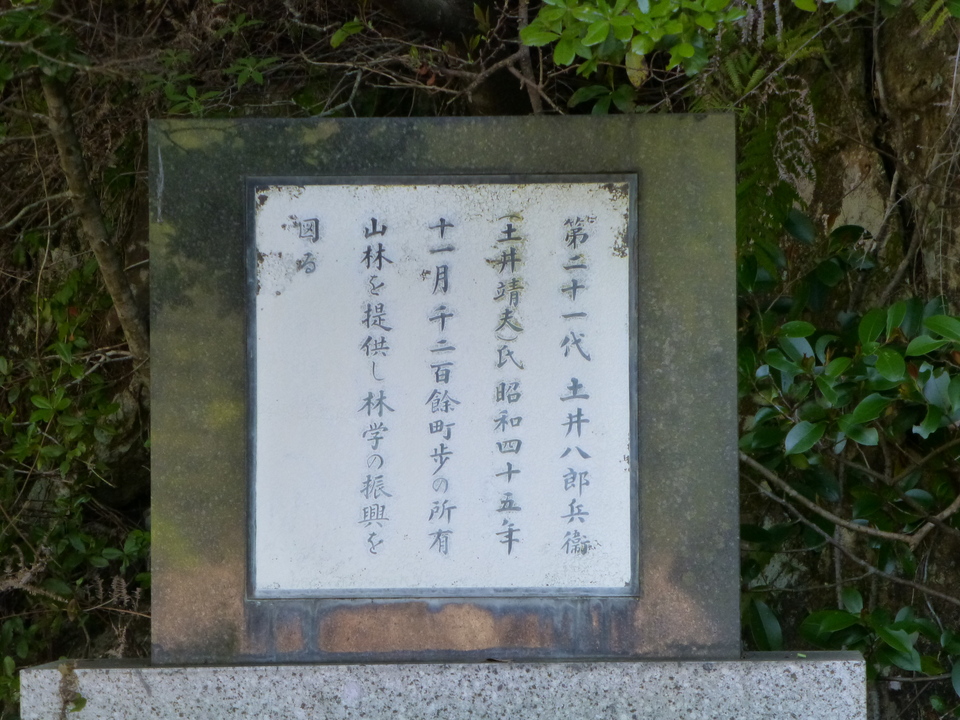 第二十一代 土井八郎兵衞
(土井靖夫)氏昭和四十五年
十一月千二百餘町歩の所有
山林を提供し林学の振興を
図る